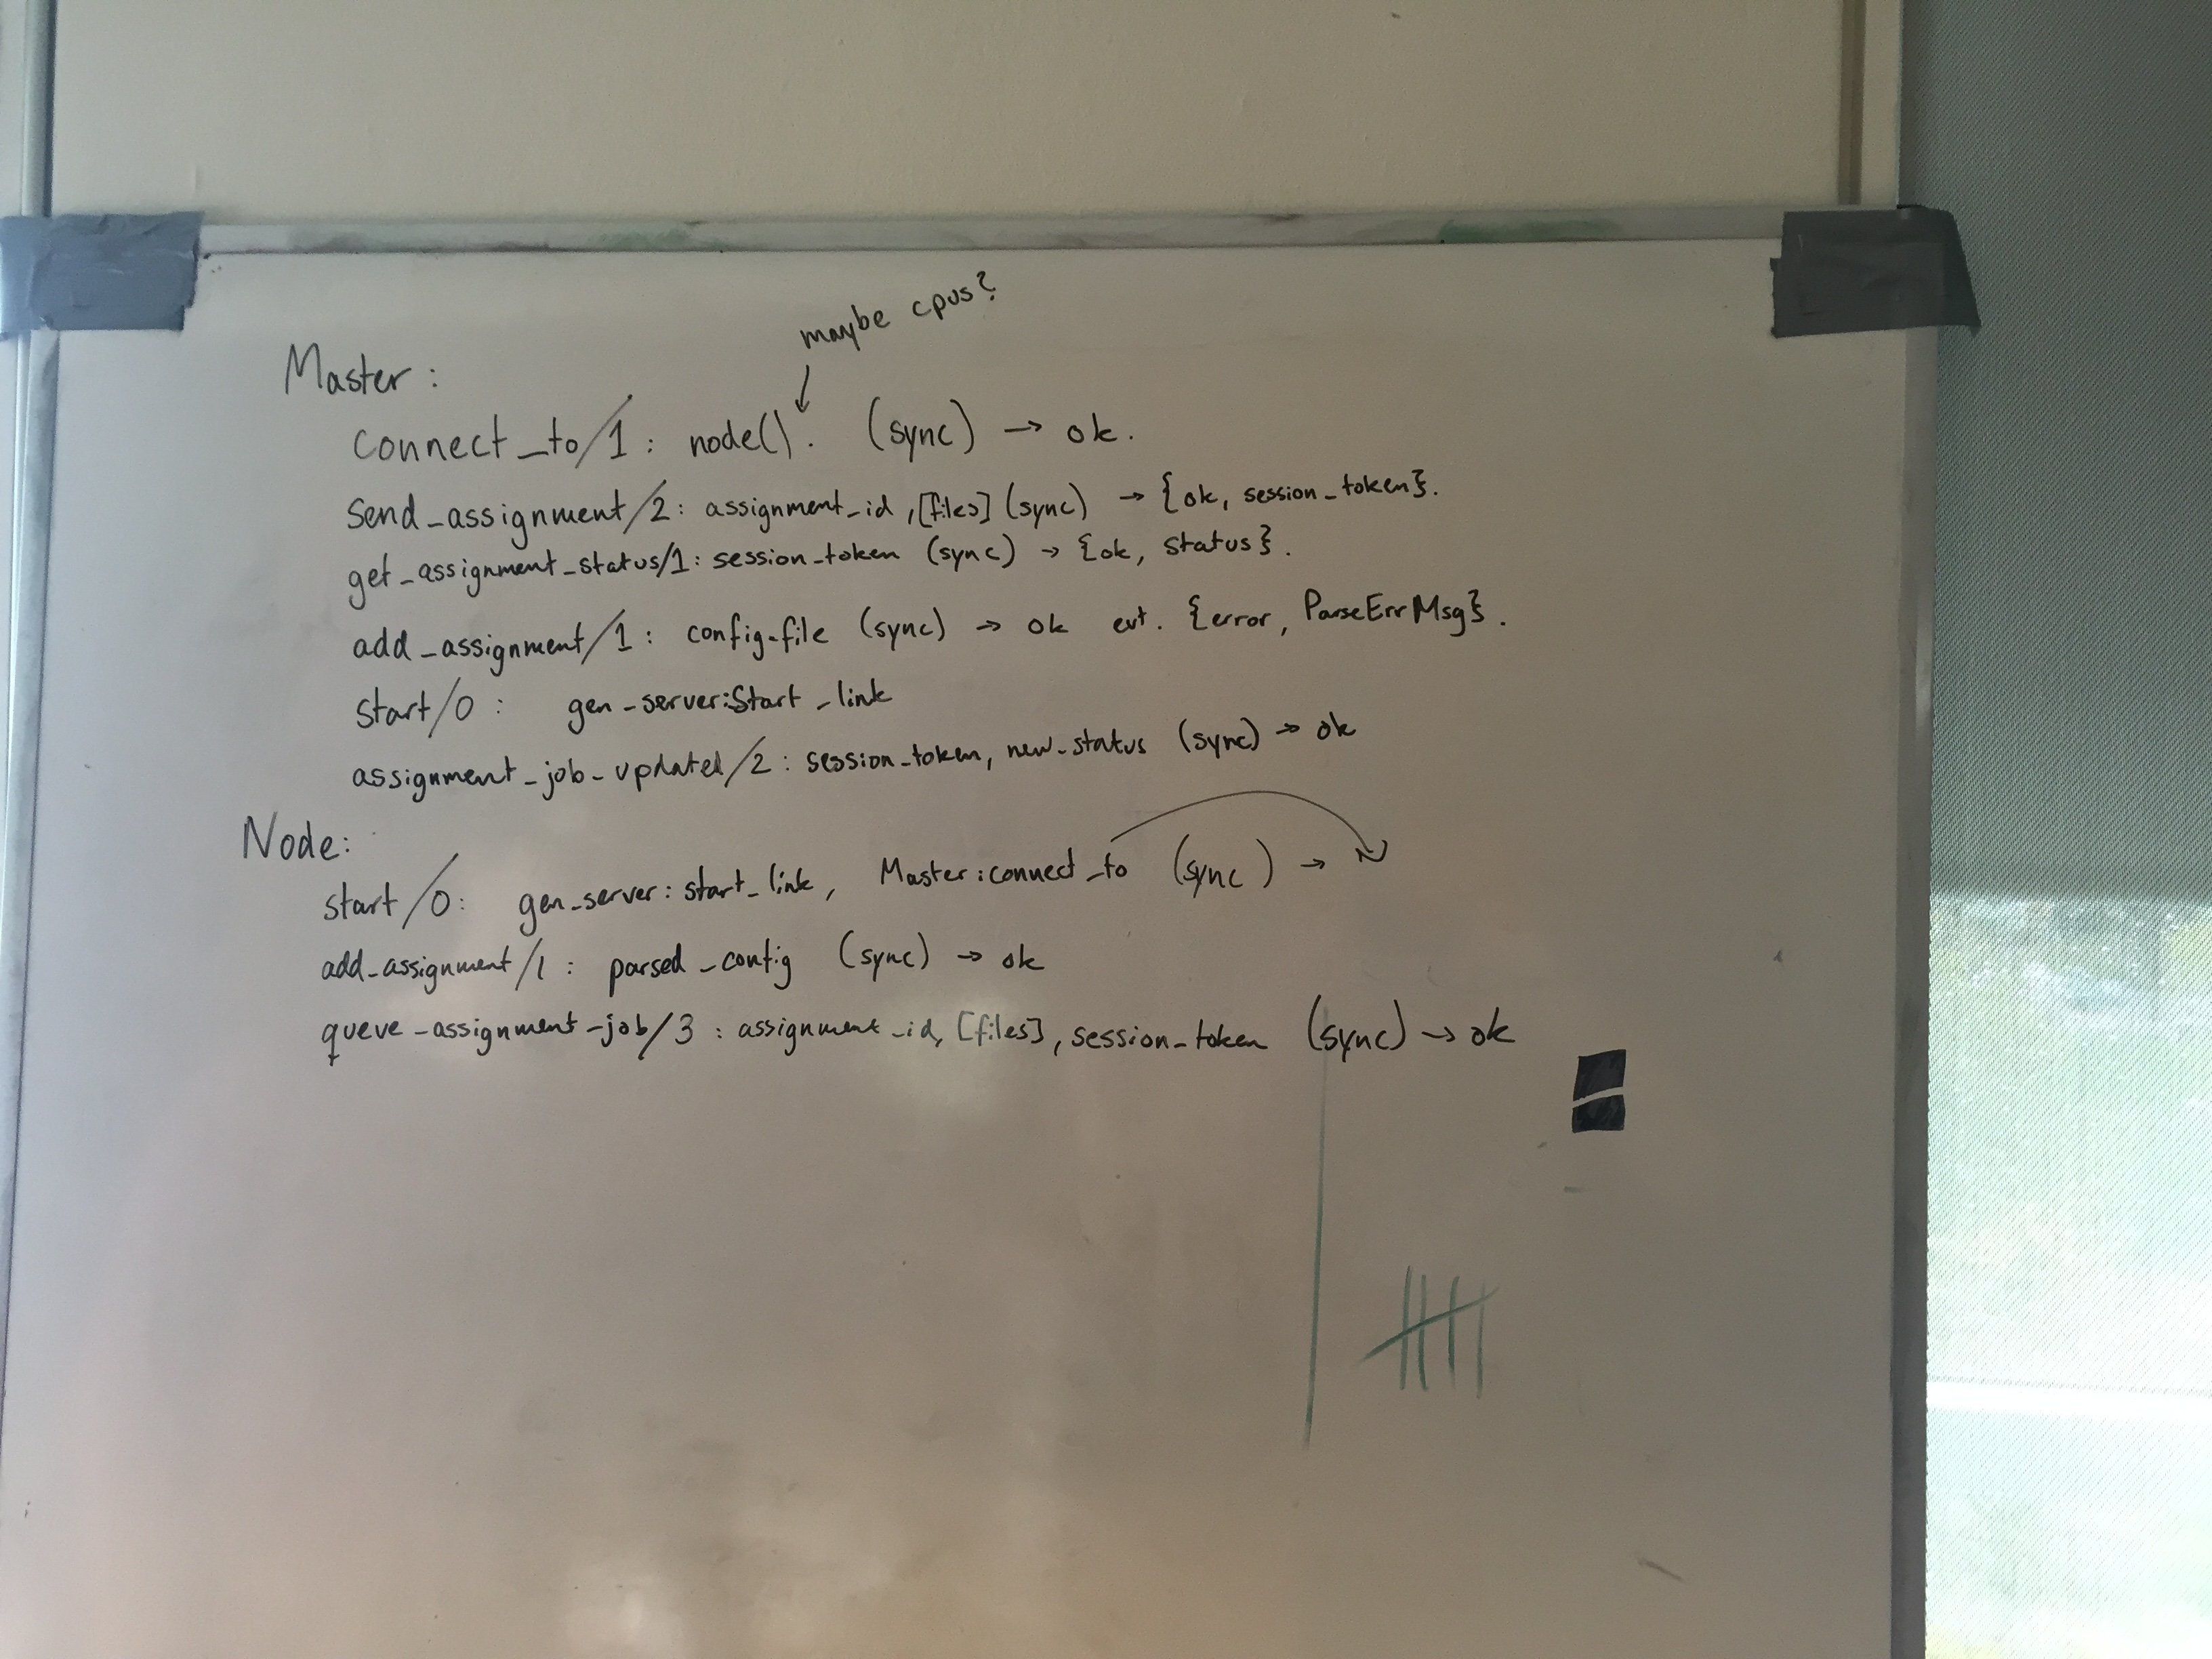 maybe cpus?
Master:
connect_to/1: node(). (sync) → ok.
send_assignment/2: assignment_id, [files] (sync) → {ok, session_token}.
get_assignment_status/1: session_token (sync) → {ok, status}.
add_assignment/1: config-file (sync) → ok evt. {error, ParseErrMsg}.
start/0: gen_server:start_link
assignment_job_updated/2: session_token, new_status (sync) → ok
Node:
start/0: gen_server:start_link, Master:connect_to (sync) →
add_assignment/1: parsed_config (sync) → ok
queue_assignment_job/3: assignment_id, [files], session_token (sync) → ok